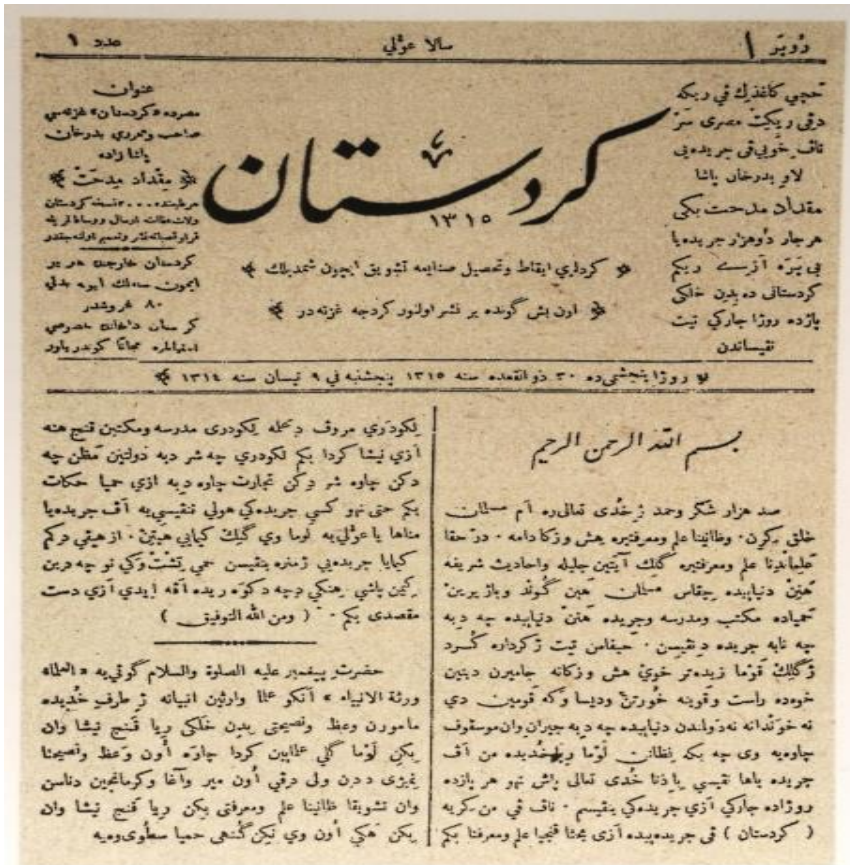 رُوپَر ١
سالا عوّلي
عدد ١
هچي كاغذيك في ريكه
درفي ريكيت مصرى سَرْ
ناف خُوييِ في جريده يى
لاو بدرخان پاشا
مقداد مدحت بكى
هر جار دُوهزار جريده يا
بى پَرَه آزے ريكم
كردستانى ده بدِن خلكى
پازده روژا جاركي تيت
نفيساندن
كردستان
١٣١٥
كردلري ايقاظ وتحصيل صنايعه تشويق ايچون شمديلك
اون بش گونده بر نشر اولنور كردجه غزته در
عنوان
مصرده «كردستان» غزته سي
صاحب ومحرري بدرخان
پاشا زاده
مقداد مدحت
كردستان خارجنده هر بر
ايچون سنه لك ابونه بدلي
٨٠ غروشدر
روژا پنجشمى ده ٣٠ ذو القعده سنه ١٣١٥ پنجشنبه في ٩ نيسان سنه ١٣١٤
بسم الله الرحمن الرحيم
صد هزار شكر وحمد ژ خُدى تعالى ره آم مسلمان
خلق كرن. وظانينا علم ومعرفتيره هش وزكا دامه. درحقا
علماندنا علم ومعرفتيره گلك آيتين جليله واحاديث شريفه
هَنِنْ دنيابيده چقاس مسلمان هين گُوند وباژيرين
حَمياده مكتب ومدرسه وجريده هَننْ دنيابيده چه دبه
چه نابه جريده دنفيسن. حيفامن تيت ژ كرداره كُرد
ژ گَلك قوما زيده تر خوَيْ هش وزكانه جاميرن دينين
خوه ده راست وقوينه خُورتن وديسا وكه قومين دي
نه خوَندانه نه دَولمندن دنيابيده چه دبه جيران وان موسقوف
چاوه يه وى چه بكه نظانن لَوما ورخُديده من آف
جريده ياها نفيسي يا ذنا خُدى تعالى پاش نهو هر پازده
روژاده جاركي آزي جريده كي بنفيسم. ناف في من كريه
( كردستان ) في جريده ييده آزى بحثا قنجيا علم ومعرفتا بكم
لكودَري مروف دحمله لكودرى مدرسه ومكتبن قنج هنه
آزي نيشا كردا بكم لكودري چه شر دبه دَولتين مَظن چه
دكن چاوه شر دكن تجارت چاوه دبه ازي حميا حكات
بكم حتى نهو كسي جريده كي هولي ننفيسي يه آف جريده يا
مناها يا عوّلي يه لوما وى گلك كيمايى هيننْ. از هيفي دركم
كيمايا جريده يي ژمنره بنفيسن حمي تِشْت وكي نو چه درين
ركيمن پاشي رهنكي دچه دكوَه ريده آقه ايدي آزي دست
مقصدى بكم. ( ومن الله التوفيق )
حضرت پيغمبر عليه الصلوة والسلام گوتي يه «العلماء
ورثة الانبياء» آنكو علما وارثين انبيانه ژ طرف خُديده
مامورن وعظ ونصيحتى بدن خلكى ريا قَنج نيشا وان
بكن لَوما گلي علمايين كردا چاوه أون وعظ ونصيحتا
نميژى ددرن ولى درفي أون مير وآغا وكرمانجين دناسن
وان تشويقا ظانينا علم ومعرفتى بكن ريا قنج نيشا وان
بكن هَكي اون وي نيكن گُنهى حميا سطوى وه يه